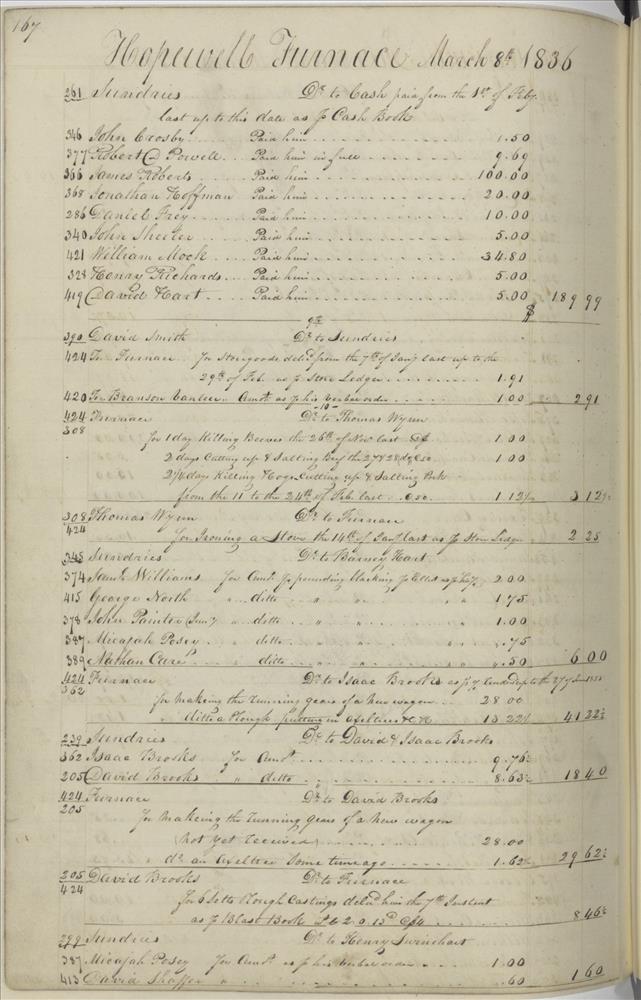 167
Hopewell Furnace March 8th 1836
261 Sundries Dr to Cash paid from the 1st of Feby
last up to this date as p Cash Book
346 John Crosby Paid him 1.50
377 Robert D Powell Paid him in full 9.69
366 James Roberts Paid him 100.00
368 Jonathan Hoffman Paid him 20.00
286 Daniel Frey Paid him 10.00
340 John Sheeler Paid him 5.00
421 William Mock Paid him 34.80
328 Henry Richards Paid him 5.00
419 David Hart Paid him 5.00 $ 189 99
9th
390 David Smith Dr to Sundries
424 To Furnace for Storegoods delid from the 7th of Jany last up to the
29th of Feb. as p Store Ledger 1.91
420 To Branson Vanleer Amt as p his verbal order 1.00 2 91
10
424 Furnace Dr to Thomas Wynn
308
for 1 day Killing Beeves the 26th of Nov last 1.00
2 days Cutting up & Salting Beef the 27 & 28 1.00
2 1/4 days Killing Hogs Cutting up & Salting Pork
from the 11 to the 24th of Feb. last 1.12½ 3 12½
308 Thomas Wynn Dr to Furnace
424
for Ironing a Stove the 14th of Jany last as p Store Ledgr 2 25
345 Sundries Dr to Barney Hart
374 Saml Williams for Amt p pounding blacking 2.00
415 George North " ditto " " " 1.75
378 John Painter Junr " ditto " " " 1.00
387 Micajah Posey " ditto " " " .75
389 Nathan Care " ditto " " " .50 6 00
424 Furnace Dr to Isaac Brooks as p up to the 27 of
362
for making the running gears of a new wagon 28.00
" ditto a Plough putting in Axeltrees &c &c 13 22½ 41 22½
239 Sundries Dr to David & Isaac Brooks
362 Isaac Brooks for Amt 9.76½
205 David Brooks " ditto " 8.63½ 18 40
424 Furnace Dr to David Brooks
205
for making the running gears of a new wagon
(not yet received) 28.00
" do an Axeltree some time ago 1.62½ 29 62½
205 David Brooks Dr to Furnace
424
for 6 Setts Plough Castings delid him the 7th Instant
as p Blast Book 8 46½
299 Sundries Dr to Henry Swinehart
387 Micajah Posey for Amt as p his verbal order 1.00
413 David Shaffer " .60 1 60